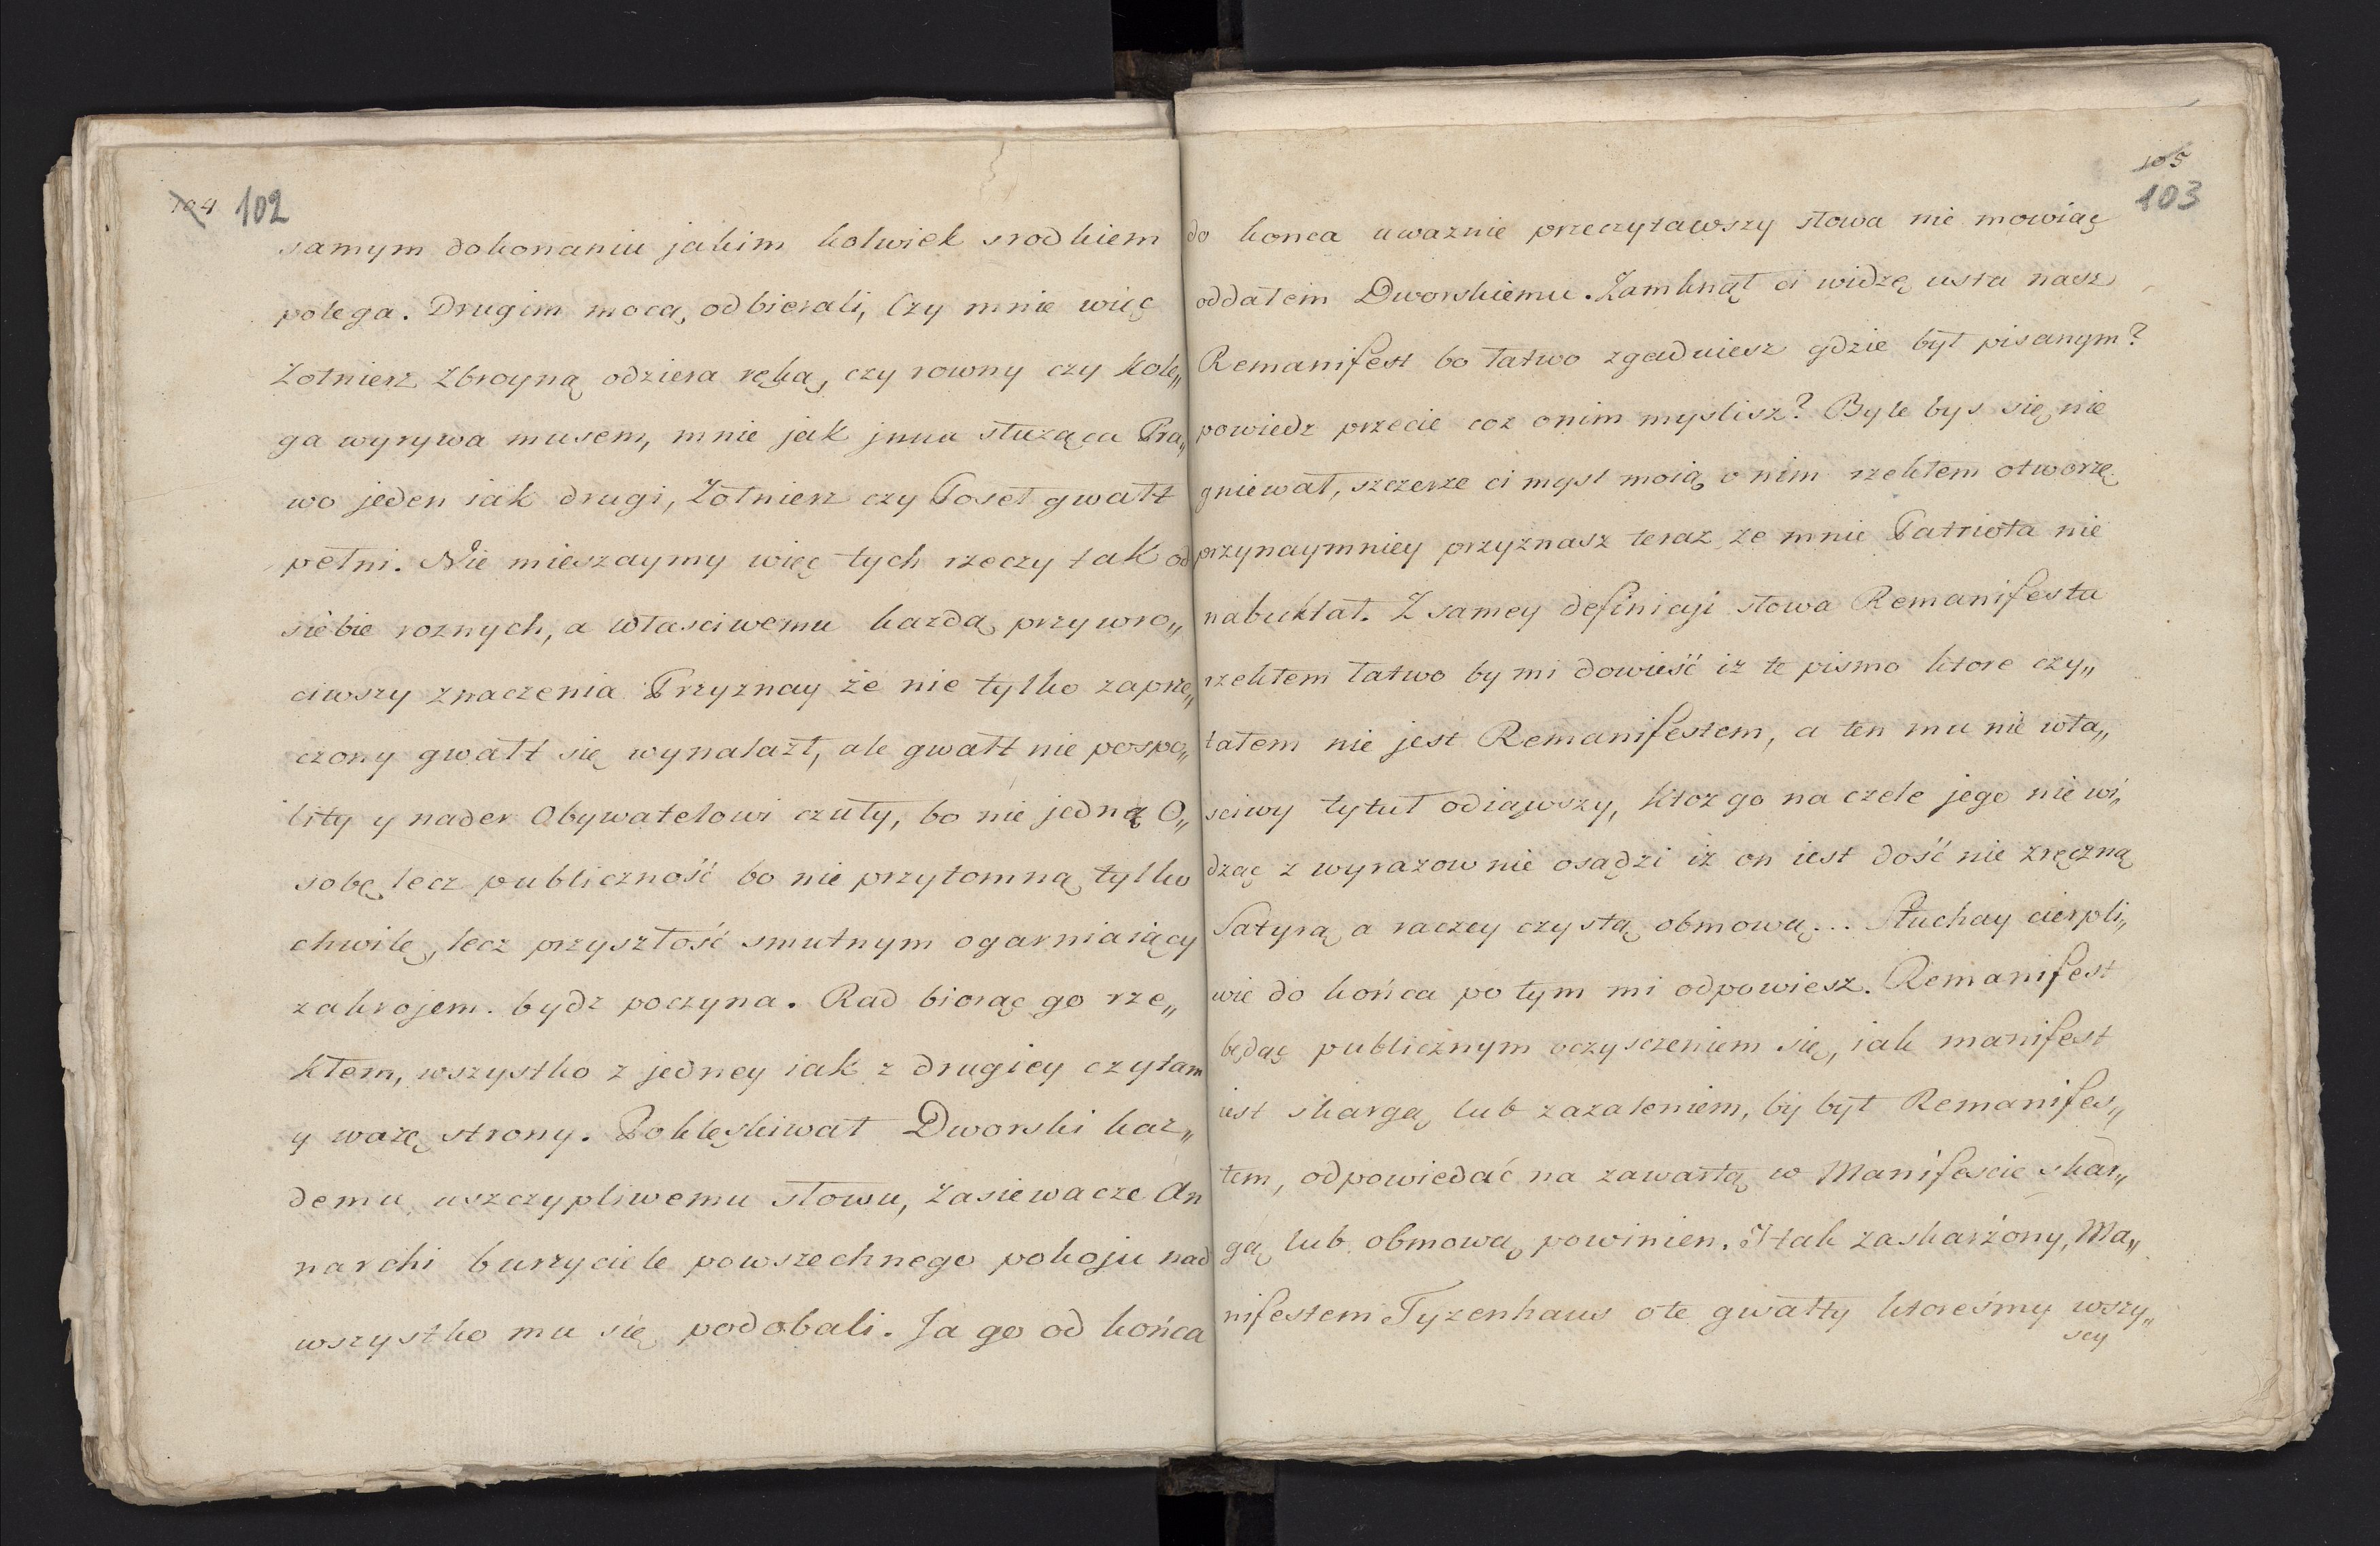 104 102
samym dokonaniu jakim kolwiek srodkiem
polega. Drugim mocą odbierali, Czy mnie więc
Zołnierz Zbroyną odziera ręką, czy rowny czy Kole„
ga wyrywa musem, mnie jak jnna służąca Pra„
wo jeden iak drugi, Zołnierz czy Poseł gwałt
pełni. Nie mieszaymy więc tych rzeczy tak od
siebie roznych, a własciwemu kazdą przywro„
ciwszy znaczenia Przyznay że nie tylko zaprze„
czony gwałt się wynalazł, ale gwałt nie pospo„
lity y nader Obywatelowi czuły, bo nie jedną O„
sobę lecz publiczność bo nie przytomną tylko
chwilę, lecz przyszłość smutnym ogarniaiący
zakrojem. bydz poczyna. Rad biorąc go rze„
kłem, wszystko z jedney iak z drugiey czytam
y warzę strony. Poklęskiwał Dworski kaz„
demu uszczypliwemu słowu, Zasiewacze An
narchi burzyciele powszechnego pokoju nad
wszystko mu się podobali. Ja go od końca
105
103
do konca uwaznie przeczytawszy słowa nie mowiąc
oddałem Dworskiemu. Zamknął ci widzę usta nasz
Remanifest bo łatwo zgadniesz gdzie był pisanym?
powiedz przecie coz onim myslisz? Byle bys się nie
gniewał, szczerze ci mysl moią o nim rzekłem otworzę
przynaymniey przyznasz teraz ze mnie Patriota nie
nabuktał. Z samey definicji słowa Remanifestu
rzekłem łatwo by mi dowieść iz te pismo ktore czy„
tałem nie jest Remanifestem, a ten mu nie wła„
sciwy tytuł odiąwszy, ktoz go na czele jego nie wi„
dząc z wyrazow nie osądzi iz on iest dość nie zręczną
Satyrą a raczey czystą obmową... Słuchay cierpli„
wie do końca po tym mi odpowiesz. Remanifest
będąc publicznym oczysczeniem się, iak manifest
iest skargą lub zazaleniem, by był Remanifes„
tem, odpowiedać na zawartą w Manifescie skar„
gą lub obmową powinien. I tak zaskarżony, Ma„
nifestem Tyzenhaus o te gwałty ktoreśmy wszy„
scy